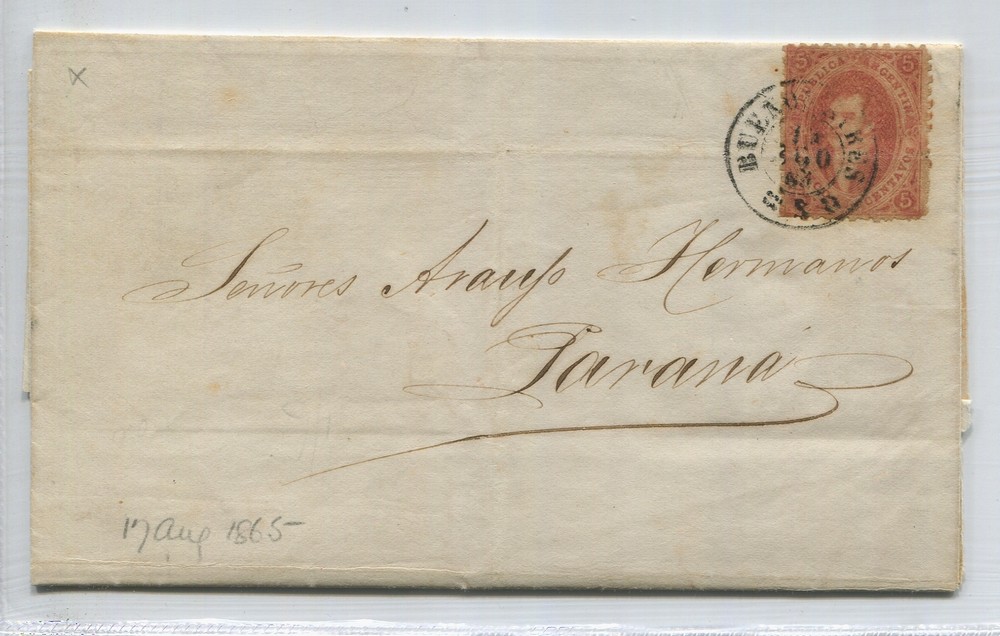 x
5 REPUBLICA ARGENTINA 5
BUENOS AIRES
AGO
65
CENTAVOS 5
Señores Araujo Hermanos
Paraná
17 Aug 1865